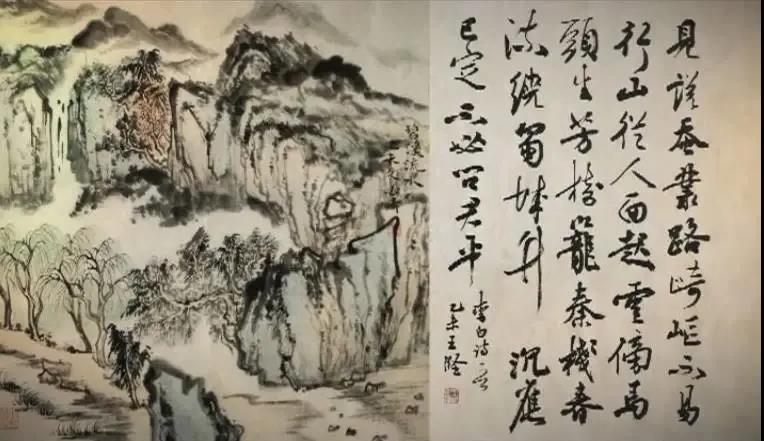 見说蚕叢路崎岖不易
行山從人面起雲傍馬
頭生芳樹籠秦棧春
流繞蜀城升沉應
已定不必问君平
李白诗一首
乙未王